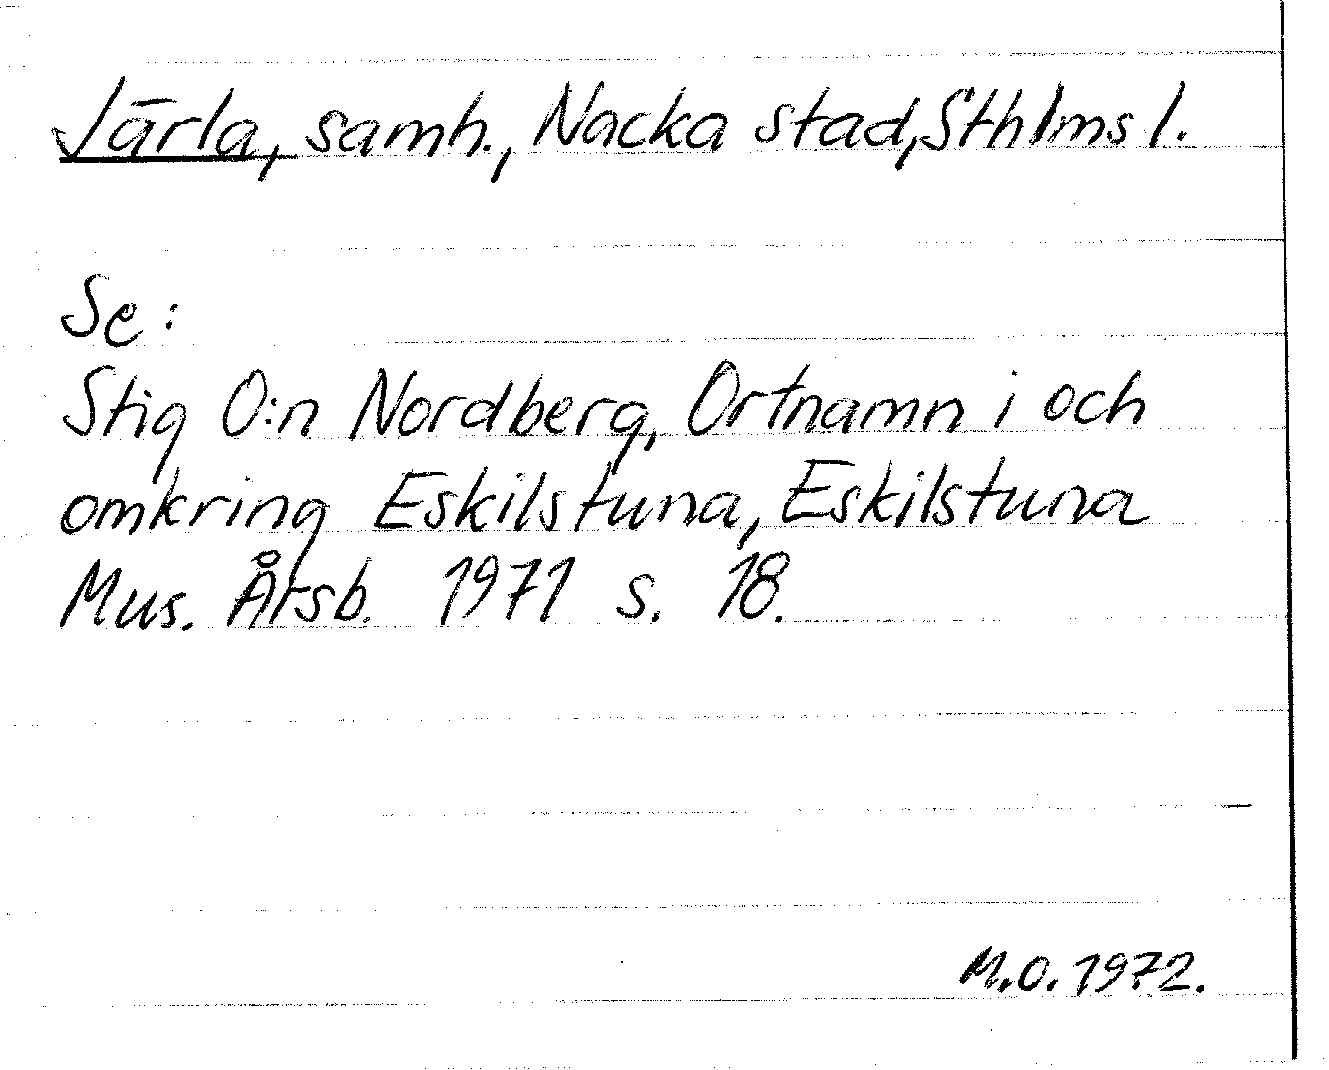 Järla, samh., Nacka stad, Sthlms l.
Se:
Stig O:n Nordberg, Ortnamn i och
omkring Eskilstuna, Eskilstuna
Mus. Årsb. 1971 s. 18.
M.O. 1972.